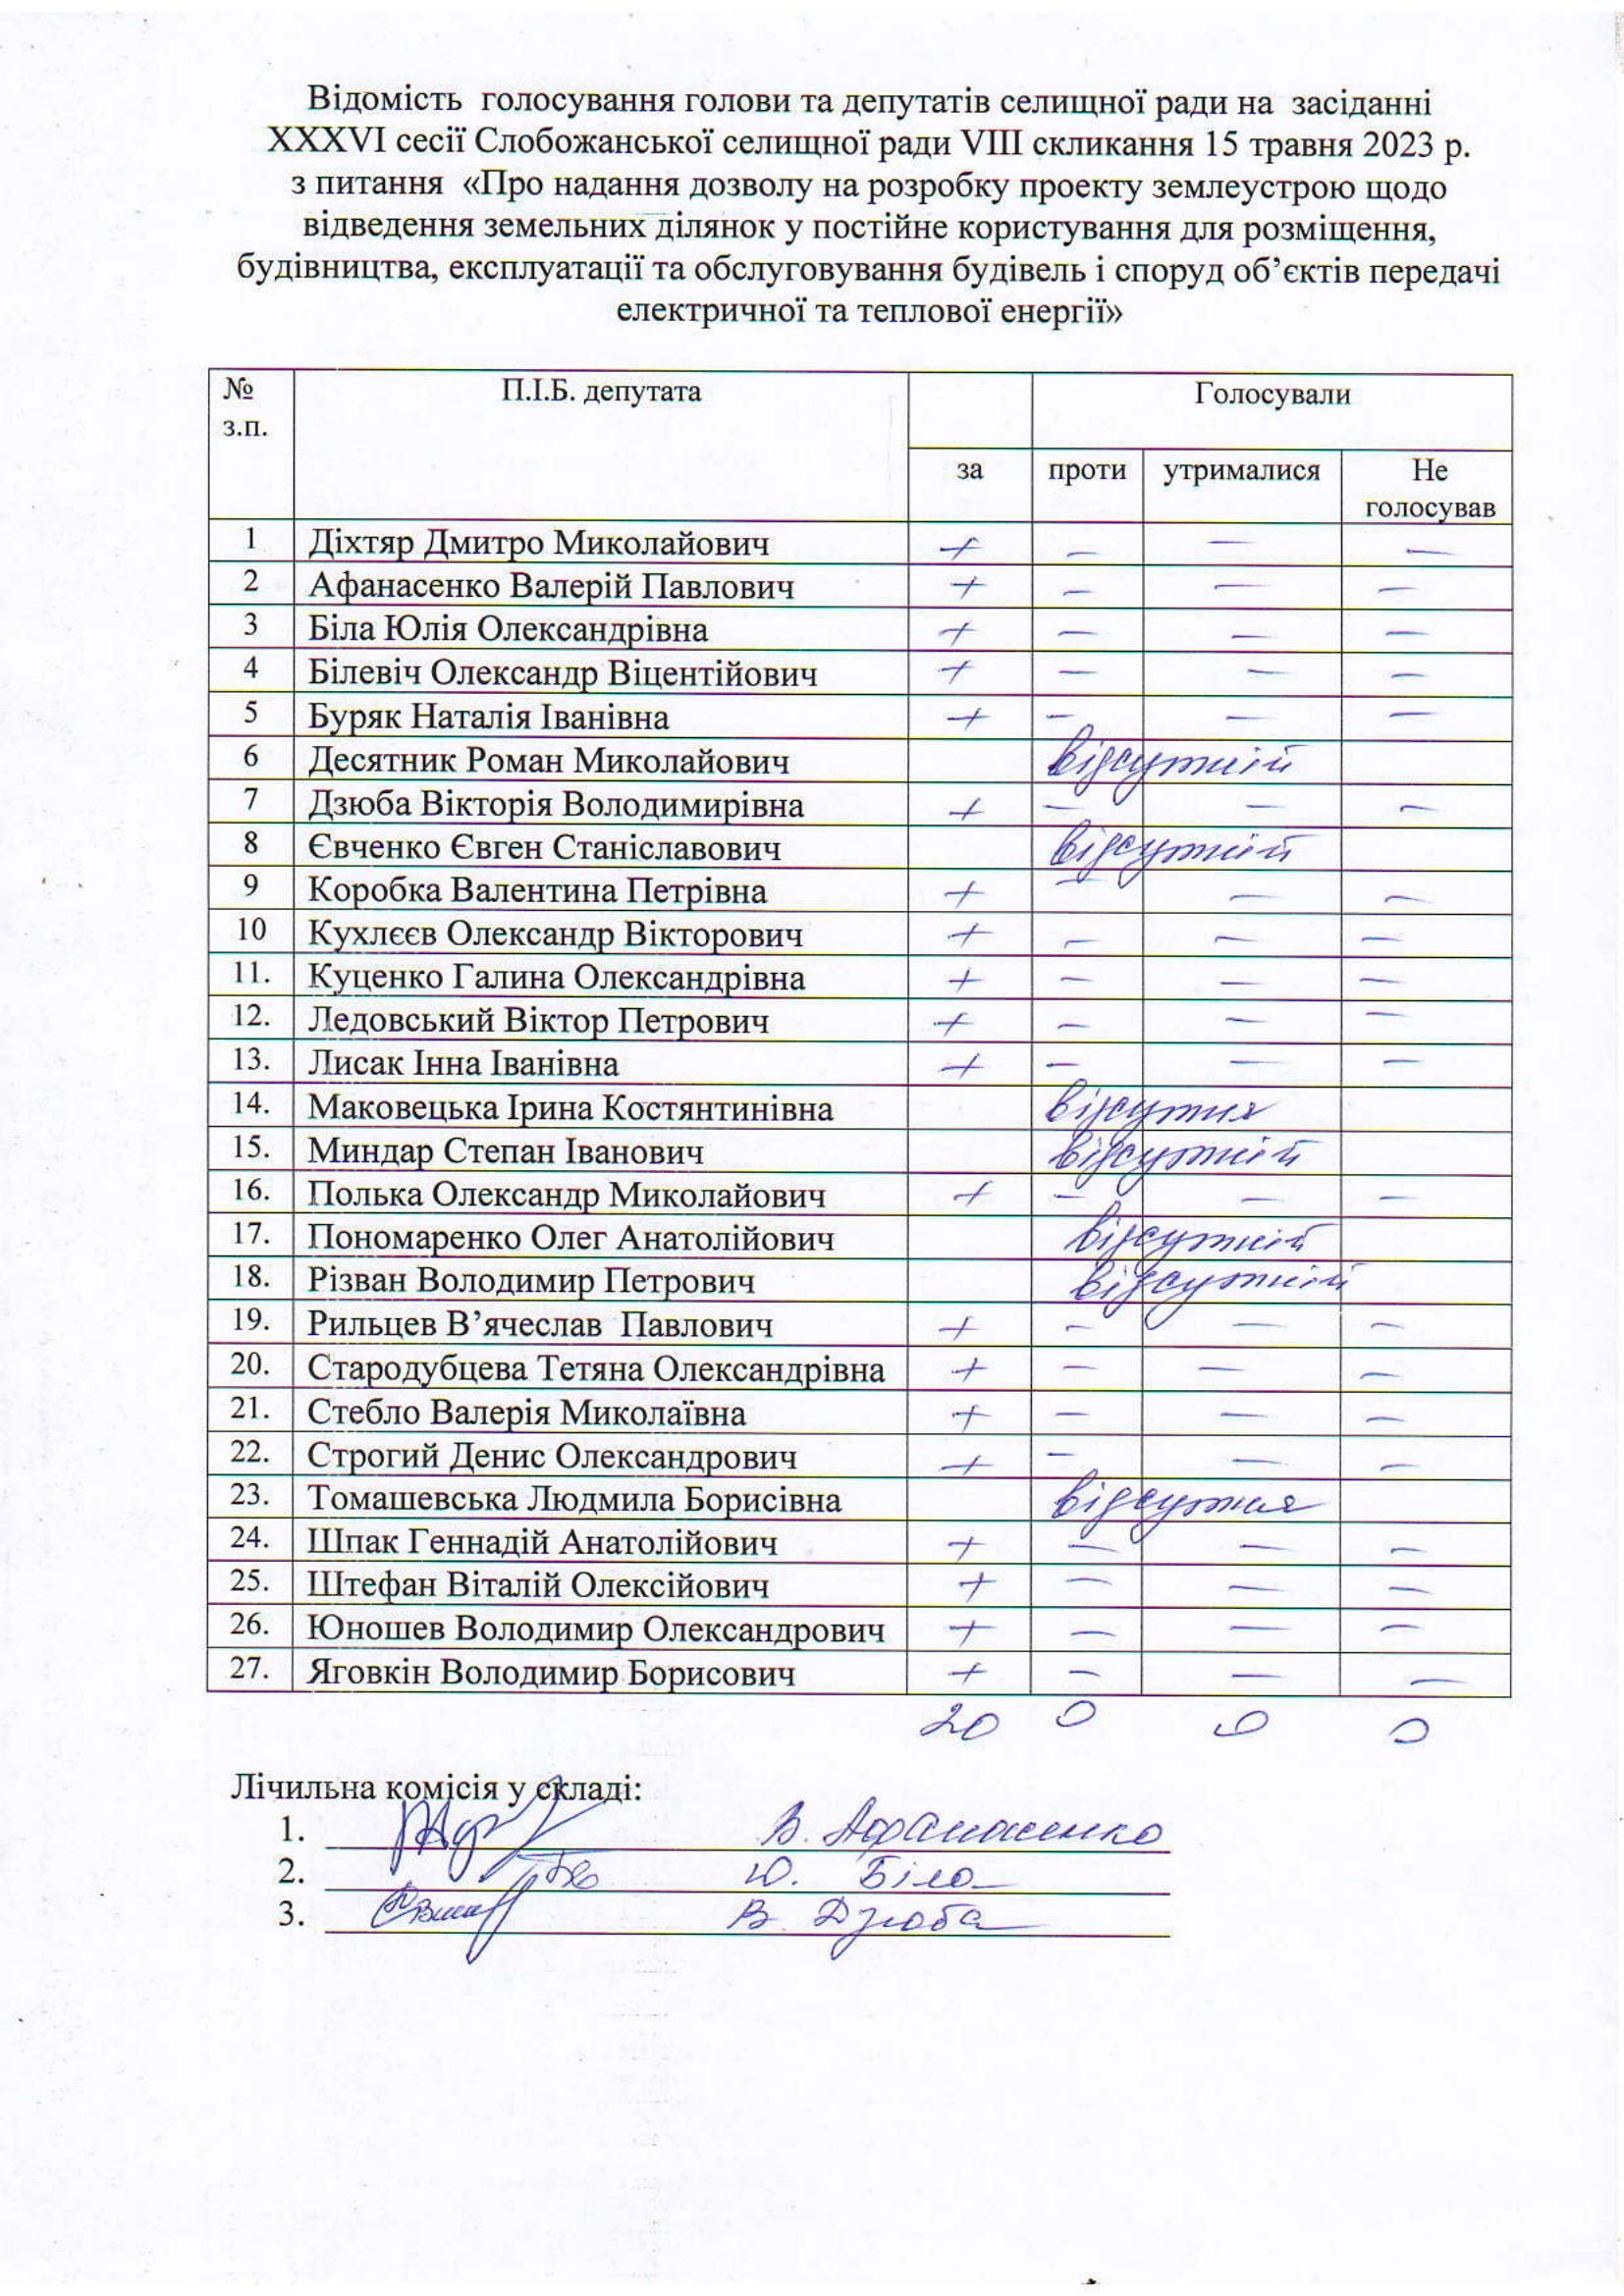 Відомість голосування голови та депутатів селищної ради на засіданні
XXXVI сесії Слобожанської селищної ради VIII скликання 15 травня 2023 р.
з питання «Про надання дозволу на розробку проекту землеустрою щодо
відведення земельних ділянок у постійне користування для розміщення,
будівництва, експлуатації та обслуговування будівель і споруд об’єктів передачі
електричної та теплової енергії»
№ з.п. П.І.Б. депутата Голосували
за проти утрималися Не голосував
1 Діхтяр Дмитро Миколайович + — — —
2 Афанасенко Валерій Павлович + — — —
3 Біла Юлія Олександрівна + — — —
4 Білевіч Олександр Віцентійович + — — —
5 Буряк Наталія Іванівна + — — —
6 Десятник Роман Миколайович відсутній
7 Дзюба Вікторія Володимирівна + — — —
8 Євченко Євген Станіславович відсутній
9 Коробка Валентина Петрівна + — — —
10 Кухлєєв Олександр Вікторович + — — —
11. Куценко Галина Олександрівна + — — —
12. Ледовський Віктор Петрович + — — —
13. Лисак Інна Іванівна + — — —
14. Маковецька Ірина Костянтинівна відсутня
15. Миндар Степан Іванович відсутній
16. Полька Олександр Миколайович + — — —
17. Пономаренко Олег Анатолійович відсутній
18. Різван Володимир Петрович відсутній
19. Рильцев В’ячеслав Павлович + — — —
20. Стародубцева Тетяна Олександрівна + — — —
21. Стебло Валерія Миколаївна + — — —
22. Строгий Денис Олександрович + — — —
23. Томашевська Людмила Борисівна відсутня
24. Шпак Геннадій Анатолійович + — — —
25. Штефан Віталій Олексійович + — — —
26. Юношев Володимир Олександрович + — — —
27. Яговкін Володимир Борисович + — — —
20 0 0 0
Лічильна комісія у складі:
1. В. Афанасенко
2. Ю. Біла
3. В. Дзюба